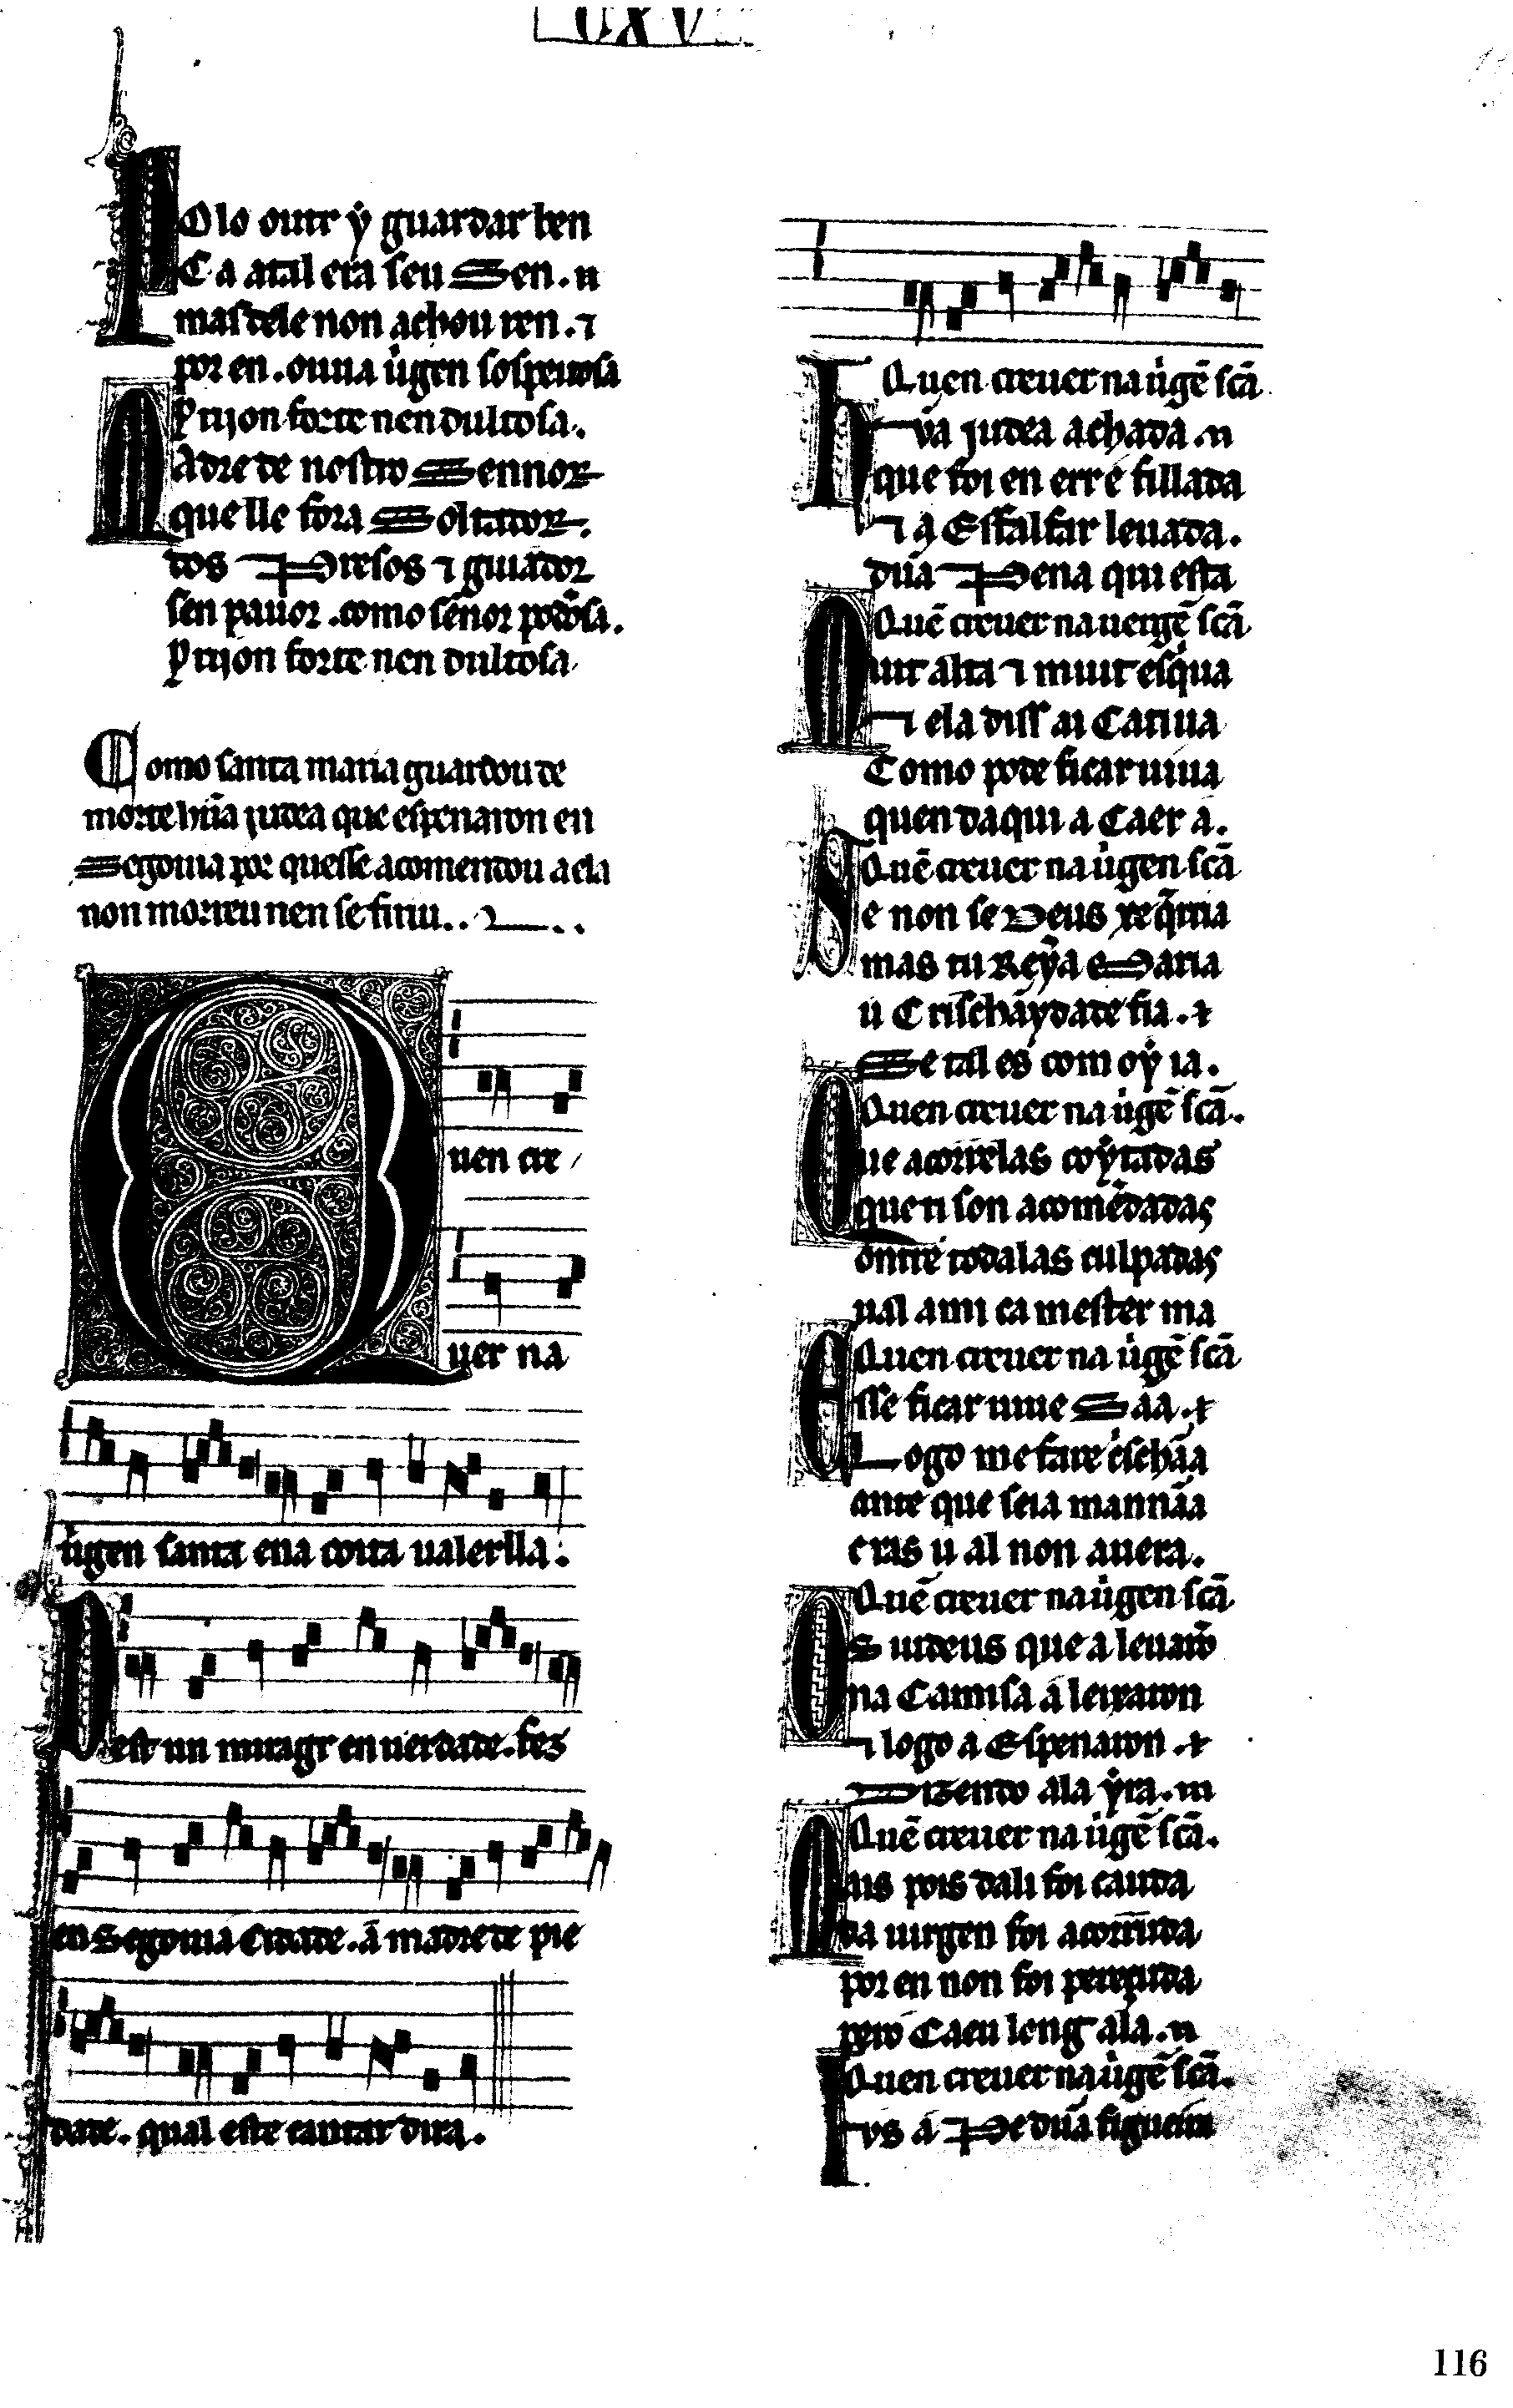 CXV
Polo oyr y guardar ben
Ca atal era seu Sen. u
mas dele non achou ren. ⁊
por en. ouua uirgen sospeitosa
Prijon forte nen dultosa.
Madre de nostro Sennor
que lle fora Soltador.
dos Presos ⁊ guiador
sen pauor. como sẽnor poðosa.
Prijon forte nen dultosa
Como santa maria guardou de
morte hũa judea que espenaron en
Segouia por quesse acomendou a ela
non morreu nen se firiu..
Quen cre
uer na
uirgen santa ena coita ualerlla.
Dest un miragr en uerdade. fez
en Segouia Cidade. a madre de pie
dade. qual este cantar dira.
Quen creuer na uirgẽ scã
Hũa judea achada. u
que foi en erre fillada
⁊ a Esfalfar leuada.
dũa Pena qui esta
Quẽ creuer na uergẽ scã
Muit alta ⁊ muit esquiua
⁊ ela diss ai Catiua
Como pode ficar uiuua
quen daqui a Caer a.
Quẽ creuer na uirgen scã
Se non se Deus xe querria
mas tu Reyña Maria
u Crischãydade fia. ⁊
Se tal es com oy ia.
Quen creuer na uirgẽ scã.
Que acorrelas coytadas
que ti son acomẽdadas
ontre todalas culpadas
ual a mi ca mester ma
Quen creuer na uirgẽ scã
E sse ficar uiue Sãa. ⁊
Logo me fare crischãa
ante que seia mannãa
cras u al non auera.
Quẽ creuer na uirgen scã
Os iudeus que a leuarõ
na Camisa a leixaron
⁊ logo a Espenaron. ⁊
Dizendo ala yra. m
Quẽ creuer na uirgẽ scã.
Mais pois dali foi cauda
da uirgen foi acorruda
por en non foi pereçuda
pero Caeu leng ala. u
Quen creuer na uirgẽ scã.
Ius a Pe dũa figueira
116